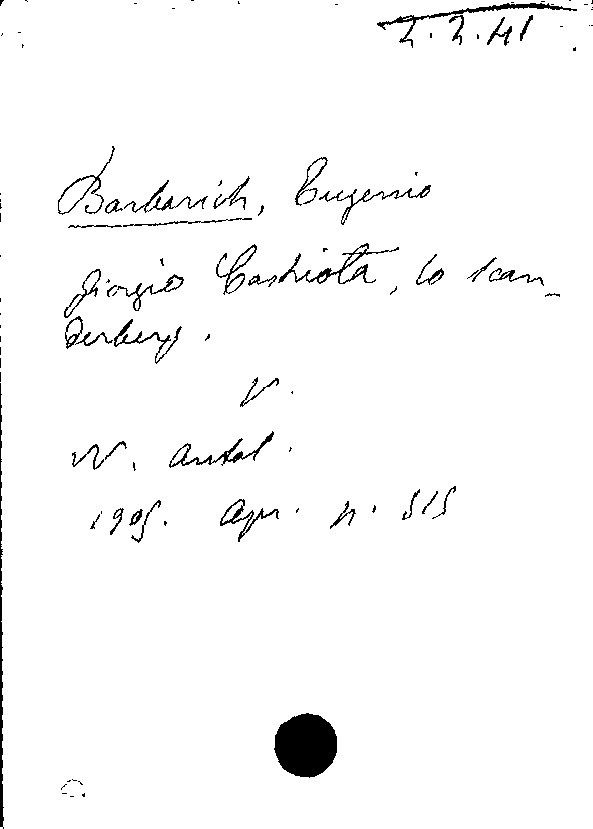 2.2.41
Barbarich, Eugenio
Giorgio Castriota, lo Scan_
derberg.
V.
N. Antol.
1905. Apr. p. 515